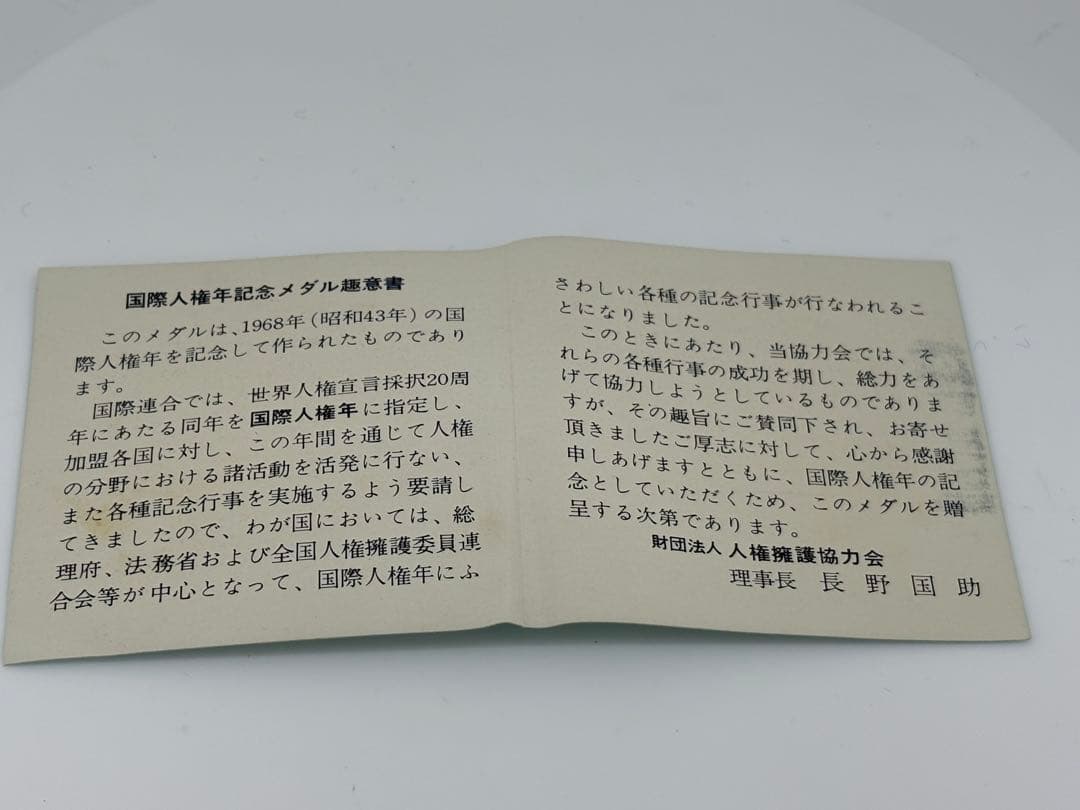 国際人権年記念メダル趣意書
このメダルは、1968年（昭和43年）の国
際人権年を記念して作られたものであり
ます。
国際連合では、世界人権宣言採択20周
年にあたる同年を国際人権年に指定し、
加盟各国に対し、この年間を通じて人権
の分野における諸活動を活発に行ない、
また各種記念行事を実施するよう要請し
てきましたので、わが国においては、総
理府、法務省および全国人権擁護委員連
合会等が中心となって、国際人権年にふ
さわしい各種の記念行事が行なわれるこ
とになりました。
このときにあたり、当協力会では、そ
れらの各種行事の成功を期し、総力をあ
げて協力しようとしているものでありま
すが、その趣旨にご賛同下され、お寄せ
頂きましたご厚志に対して、心から感謝
申しあげますとともに、国際人権年の記
念としていただくため、このメダルを贈
呈する次第であります。
財団法人 人権擁護協力会
理事長 長野国助